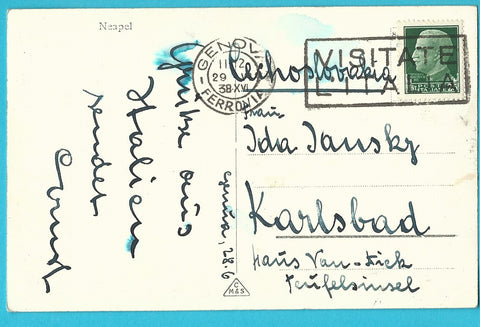 Neapel
GENOVA
11-12
29
38-XVI
FERROVIA
VISITATE
L'ITALIA
Čechoslovakia
Frau
Ida Jansky
Karlsbad
Haus Van-Dick
Teufelsinsel
Genua, 28.6
Grüße aus
Italien
sendet
C
M&S